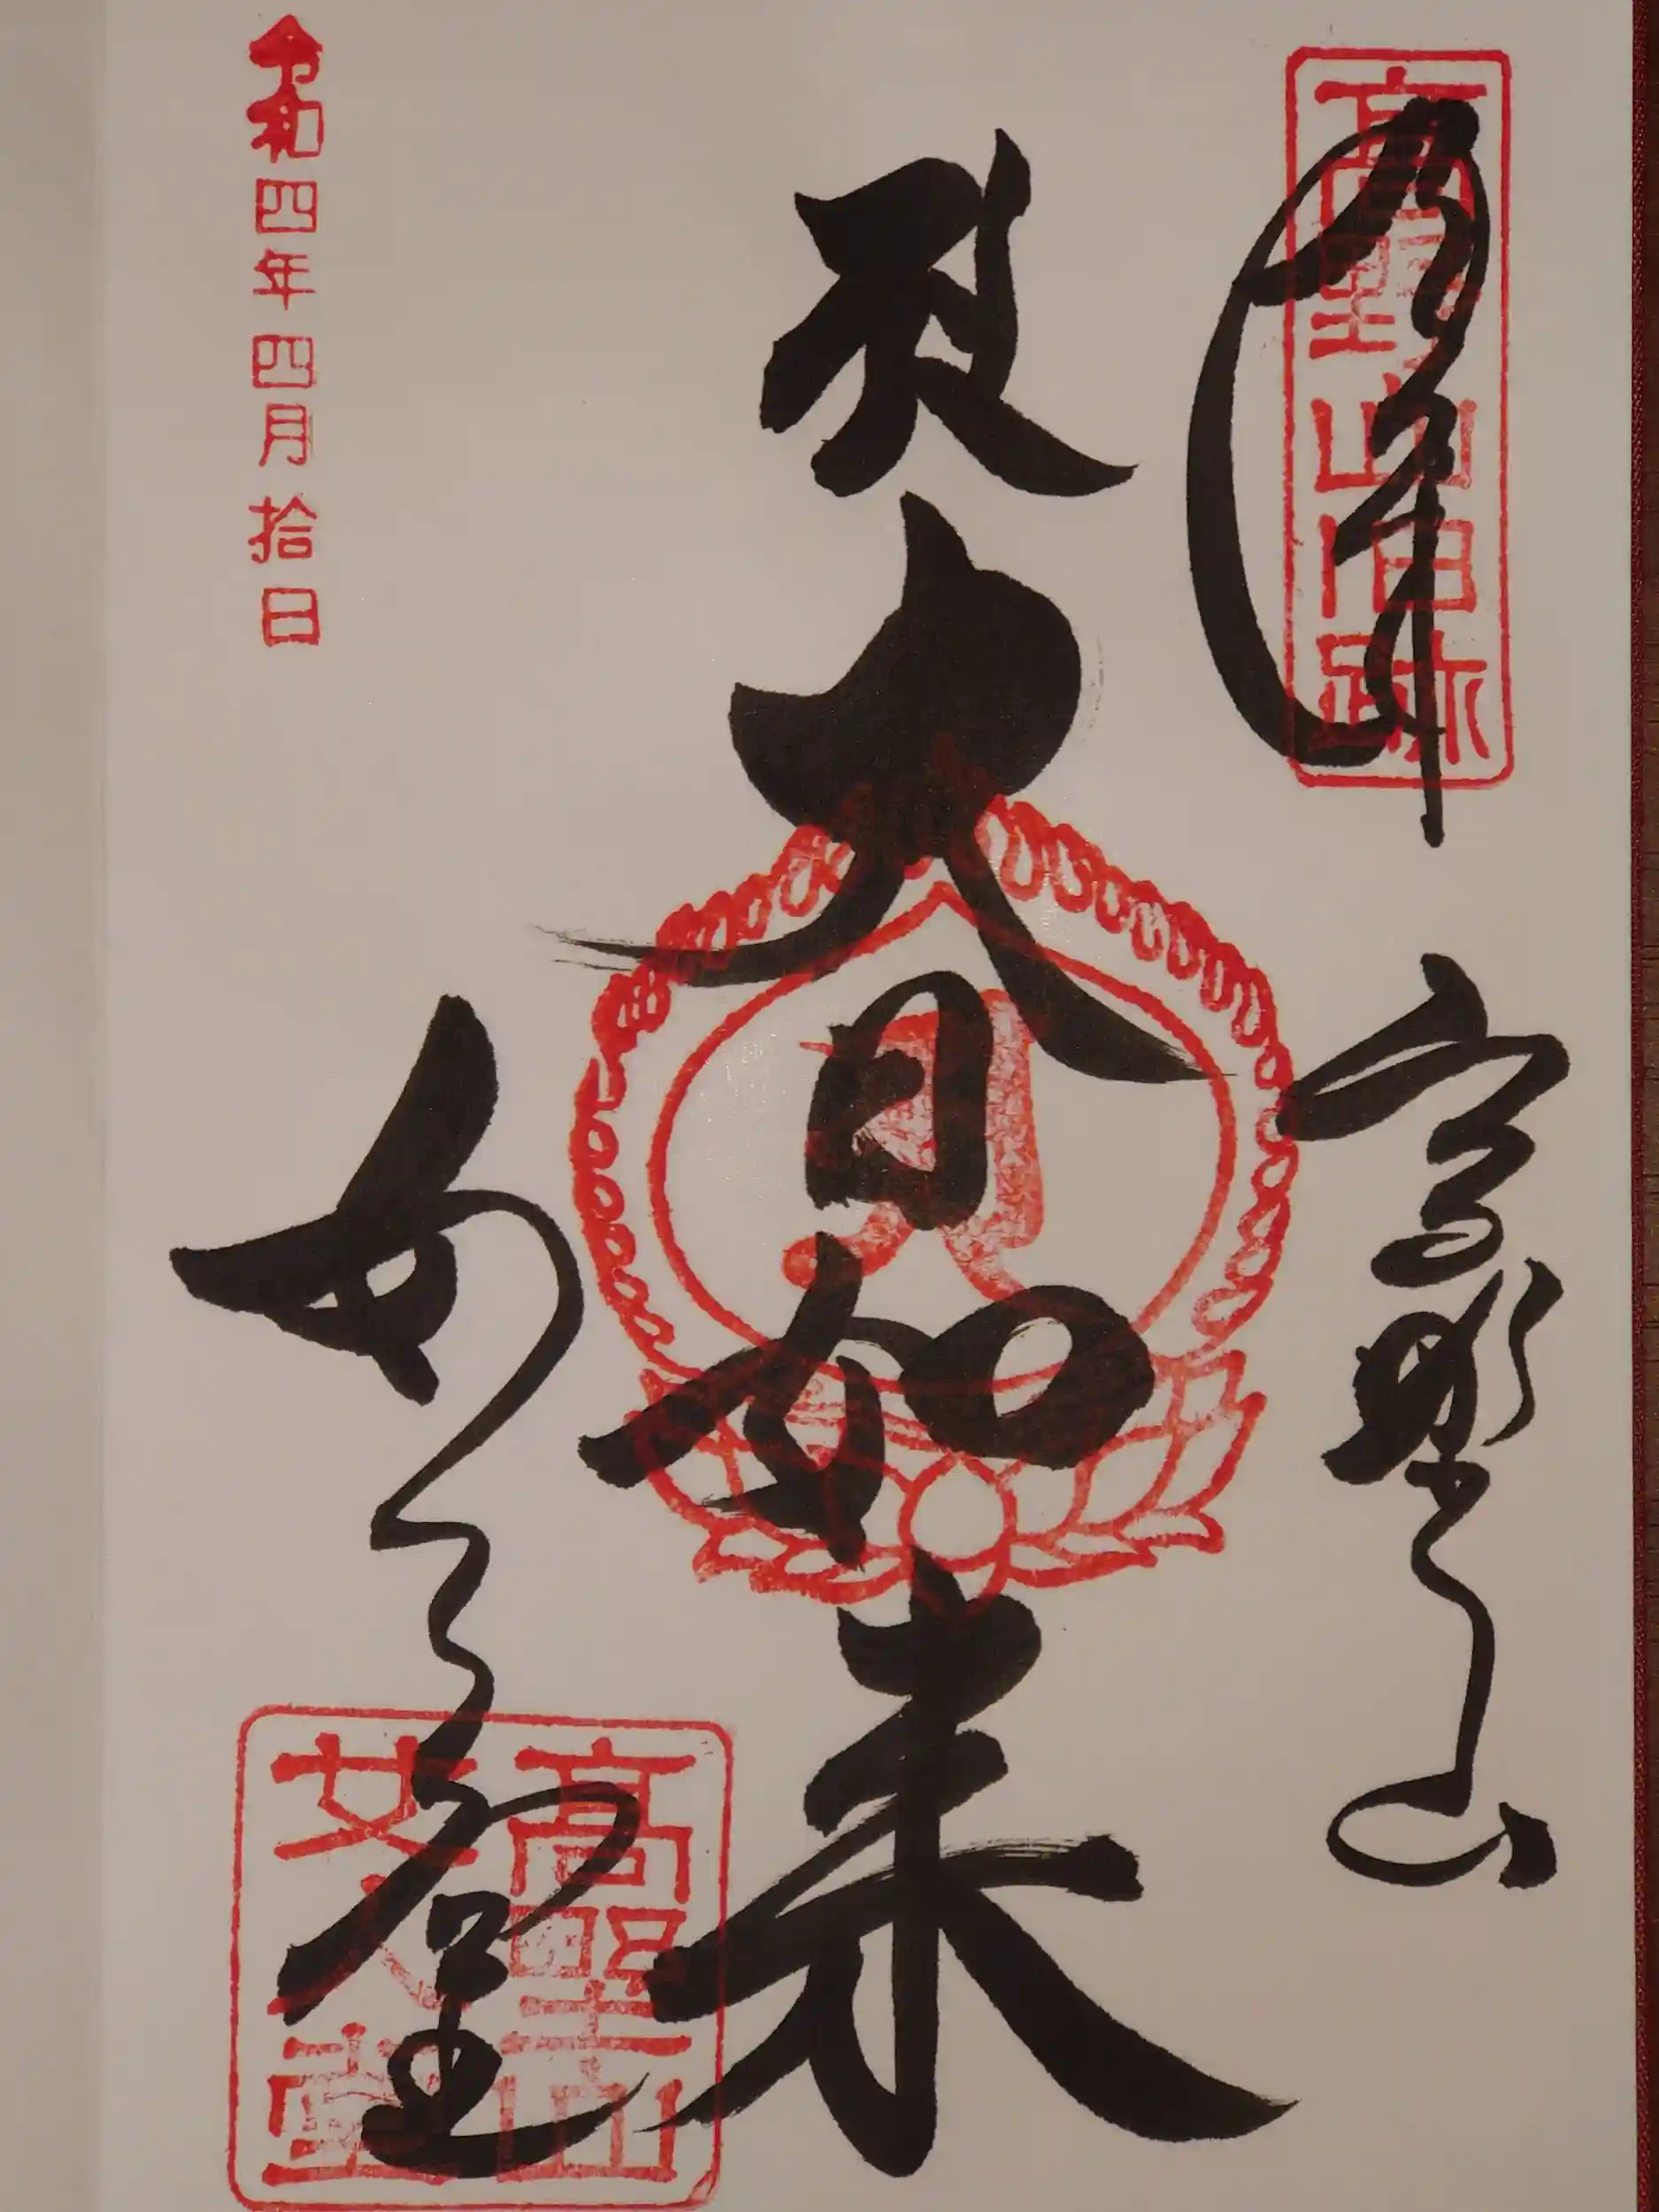 奉拝
高野山
高野山旧跡
大日如来
女人堂
高野山
女人堂
令和四年四月拾日